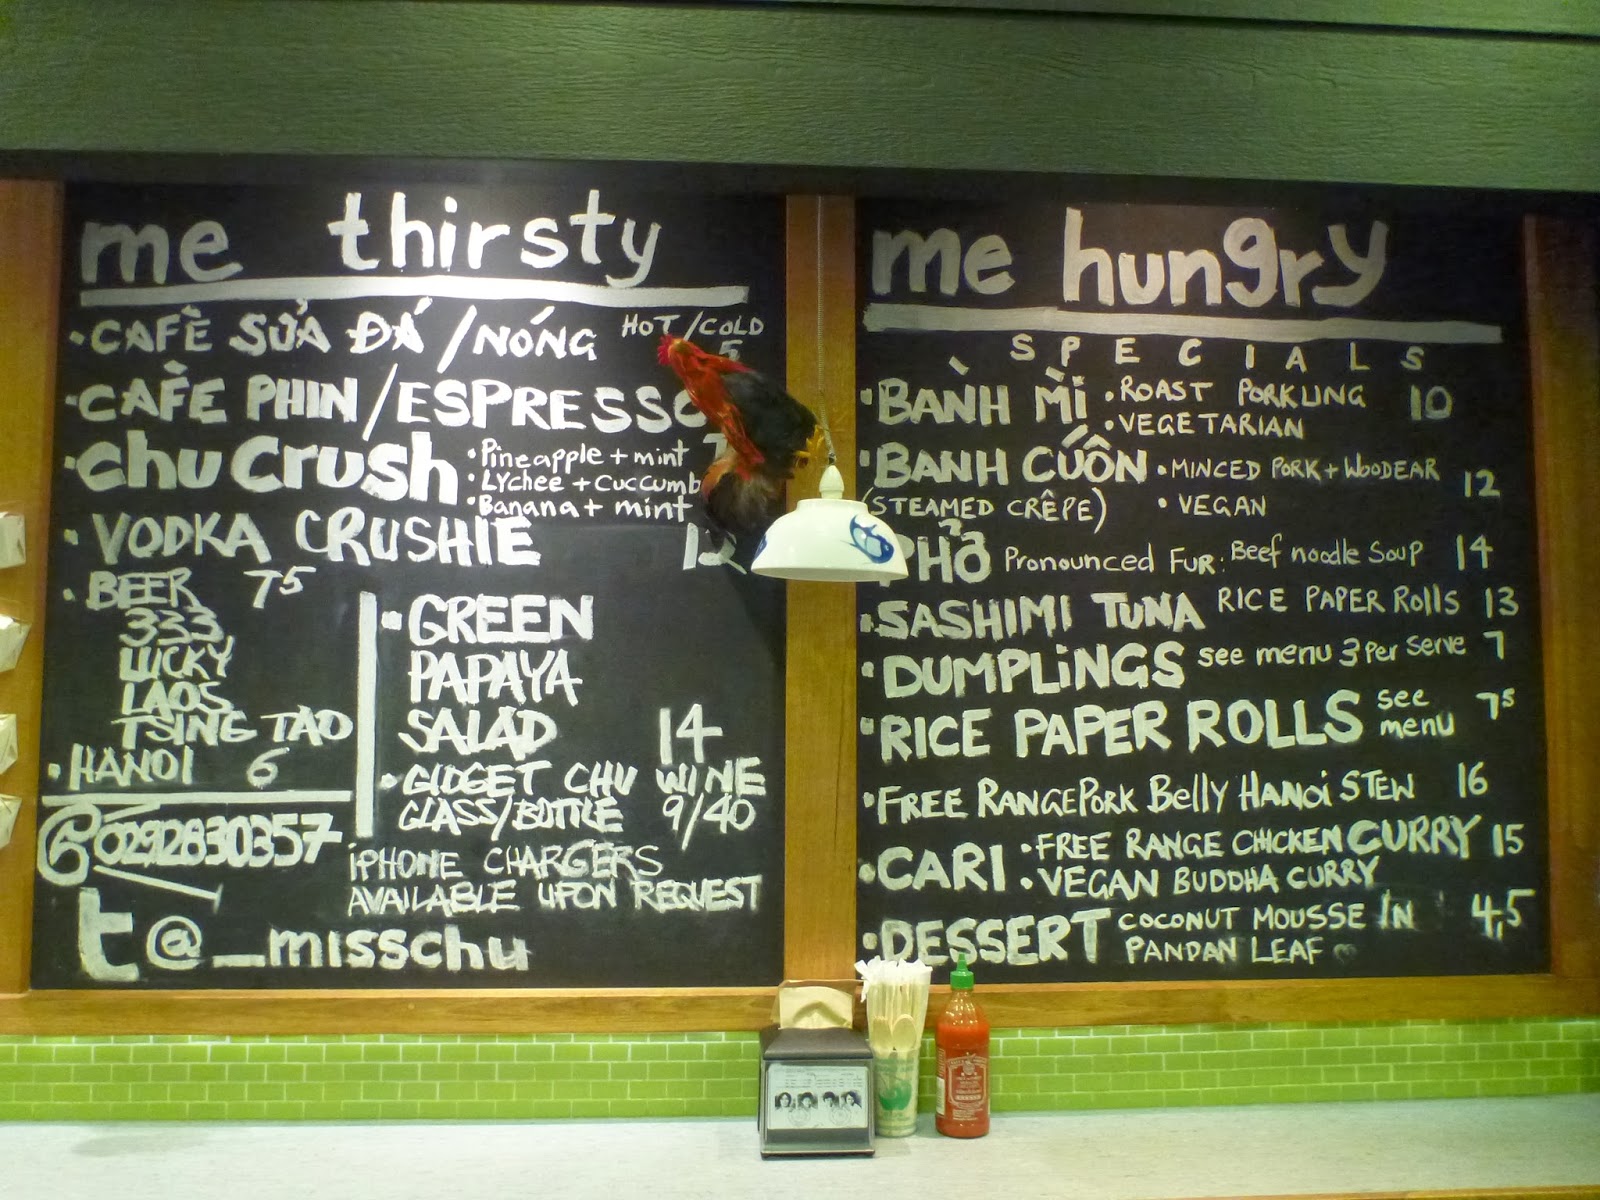 me thirsty
CAFÈ SỬA ĐÁ/NÓNG HOT/COLD 5
CAFÈ PHIN/ESPRESSO
chu Crush
Pineapple + mint
Lychee + cuccumb
Banana + mint
VODKA CRUSHIE 12
BEER 7⁵
333
LUCKY
LAOS
TSING TAO
HANOI 6
GREEN
PAPAYA
SALAD 14
GIDGET CHU WINE
GLASS/BOTTLE 9/40
0292830357
iPHONE CHARGERS
AVAILABLE UPON REQUEST
t@_misschu
me hungry
SPECIALS
BANH MÌ • ROAST PORKLING 10
• VEGETARIAN
BANH CUỐN • MINCED PORK + WOODEAR 12
(STEAMED CRÊPE) • VEGAN
PHỞ Pronounced FUR: Beef noodle Soup 14
SASHIMI TUNA RICE PAPER Rolls 13
DUMPLiNGS see menu 3 Per Serve 7
RICE PAPER ROLLS see menu 7⁵
FREE RANGE PORK Belly HANOi STEW 16
CARI • FREE RANGE CHICKEN CURRY 15
• VEGAN BUDDHA CURRY
DESSERT COCONUT MOUSSE IN 4,5
PANDAN LEAF